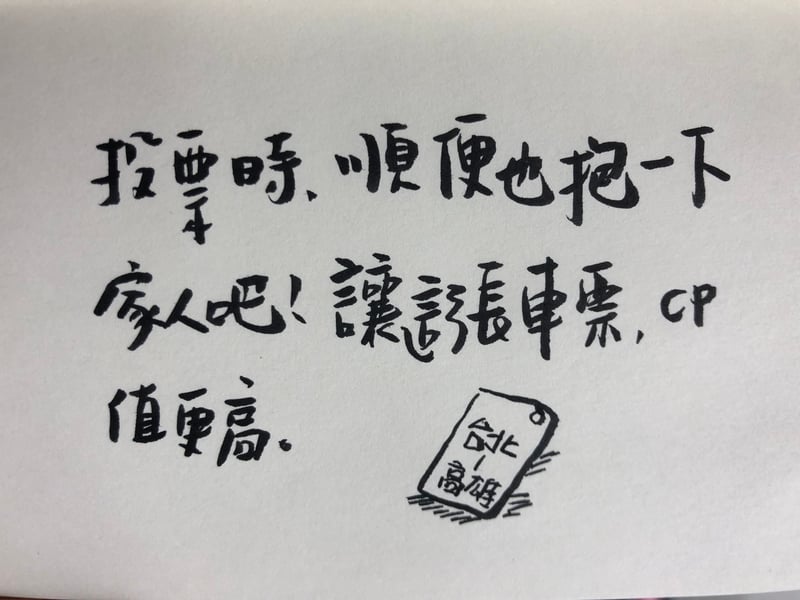 投票時、順便也抱一下
家人吧！讓這張車票，CP
值更高。
台北
-
高雄